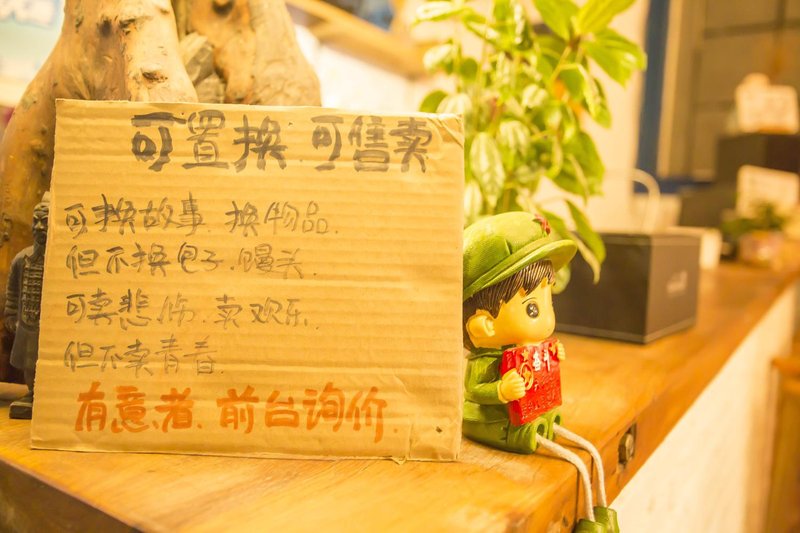 可置换 可售卖
可换故事.换物品.
但不换电子.馒头.
可卖悲伤.卖欢乐.
但不卖青春.
有意者.前台询价.